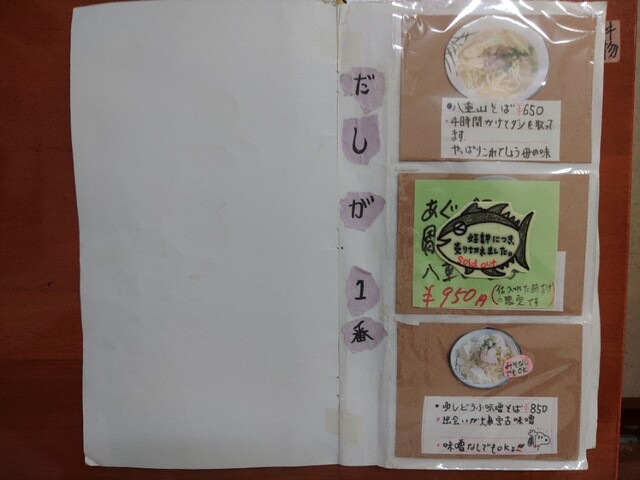 だしが1番
丼物
•八重山そば ¥650
・4時間かけてダシを取って
ます.
やっぱりこれでしょう母の味
あぐ
八重
好評につき
売り切れました。
Sold out
¥950円
仕入れた
限定です
みそなし
でもOK
•ゆしどうふ味噌そば ¥850
・出会いが大事宮古味噌
・味噌なしでもOKよ!!